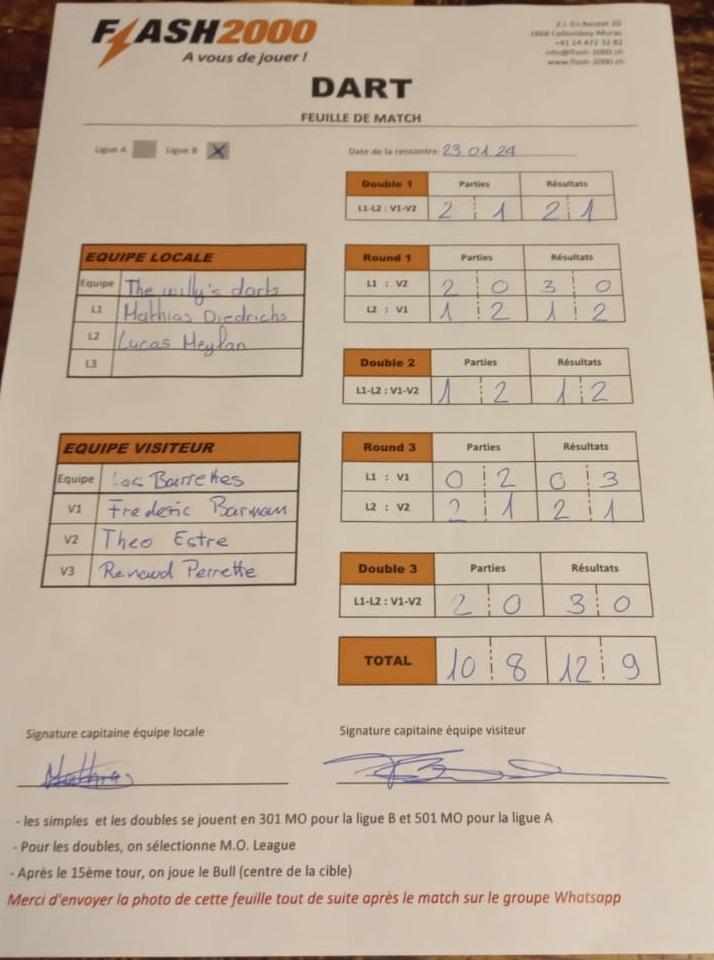 FLASH2000
A vous de jouer !
Z.I. En Boutet 20
1868 Collombey-Muraz
+41 24 472 32 82
info@flash-2000.ch
www.flash-2000.ch
DART
FEUILLE DE MATCH
Ligue A Ligue B X
Date de la rencontre: 23.01.24
Double 1 Parties Résultats
L1-L2 : V1-V2 2 1 2 1
EQUIPE LOCALE
Equipe The willy's darts
L1 Mathias Diedrichs
L2 Lucas Meylan
L3
Round 1 Parties Résultats
L1 : V2 2 0 3 0
L2 : V1 1 2 1 2
Double 2 Parties Résultats
L1-L2 : V1-V2 1 2 1 2
EQUIPE VISITEUR
Equipe Los Barrettes
V1 Frederic Barman
V2 Theo Estre
V3 Renaud Perrette
Round 3 Parties Résultats
L1 : V1 0 2 0 3
L2 : V2 2 1 2 1
Double 3 Parties Résultats
L1-L2 : V1-V2 2 0 3 0
TOTAL 10 8 12 9
Signature capitaine équipe locale
Mathias
Signature capitaine équipe visiteur
- les simples et les doubles se jouent en 301 MO pour la ligue B et 501 MO pour la ligue A
- Pour les doubles, on sélectionne M.O. League
- Après le 15ème tour, on joue le Bull (centre de la cible)
Merci d'envoyer la photo de cette feuille tout de suite après le match sur le groupe Whatsapp